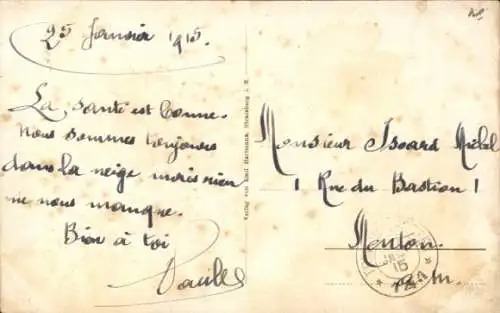 25 Janvier 1915.
La santé est bonne.
Nous sommes toujours
dans la neige mais rien
ne nous manque.
Bien à toi
Verlag von Emil Hartmann, Strassburg i. E.
Monsieur Isoard Michel
1 Rue du Bastion 1
Menton.
A. M.
15